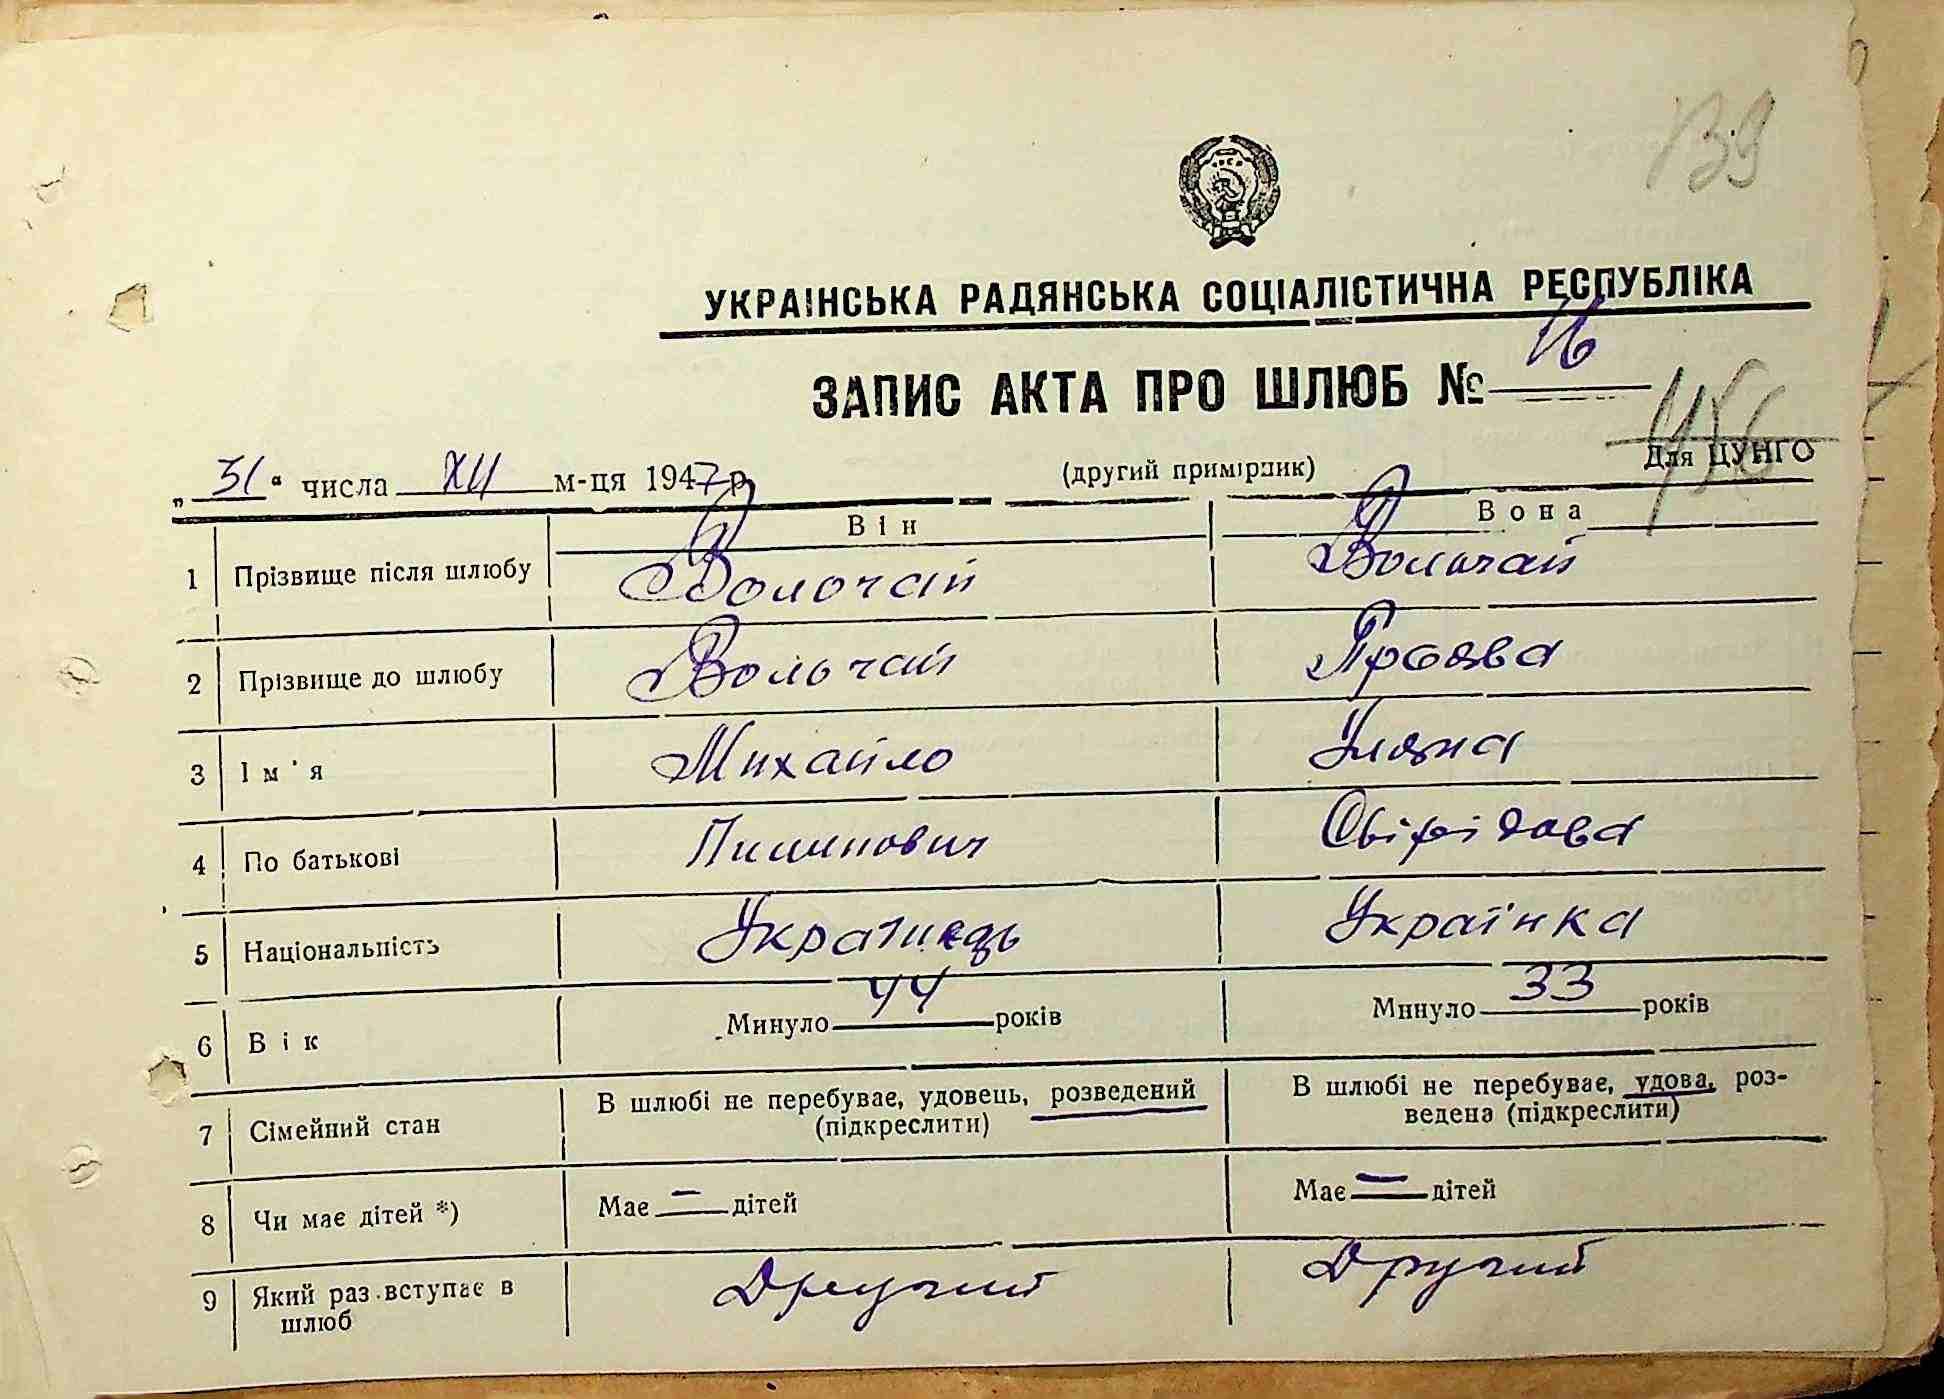 139
УКРАЇНСЬКА РАДЯНСЬКА СОЦІАЛІСТИЧНА РЕСПУБЛІКА
ЗАПИС АКТА ПРО ШЛЮБ № 16
456
„31“ числа XII м-ця 1947 р. (другий примірник) Для ЦУНГО
Він Вона
1 Прізвище після шлюбу Волочай Вольчай
2 Прізвище до шлюбу Вольчай
3 Ім'я Михайло Уляна
4 По батькові Пилипович Свірідовна
5 Національність Українець Українка
6 Вік Минуло 44 років Минуло 33 років
7 Сімейний стан В шлюбі не перебуває, удовець, розведений (підкреслити) В шлюбі не перебуває, удова, роз-
ведена (підкреслити)
8 Чи має дітей *) Має — дітей Має — дітей
9 Який раз вступає в шлюб Другий Другий